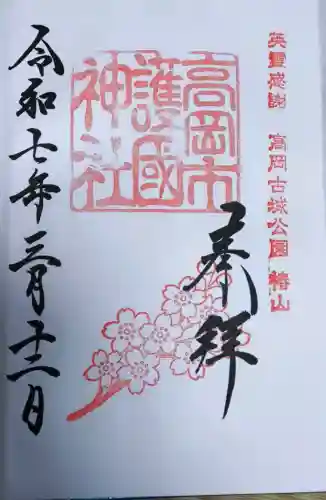 英霊感謝 高岡古城公園 椿山
奉拝
高岡市
護國
神社
令和七年三月二十二日